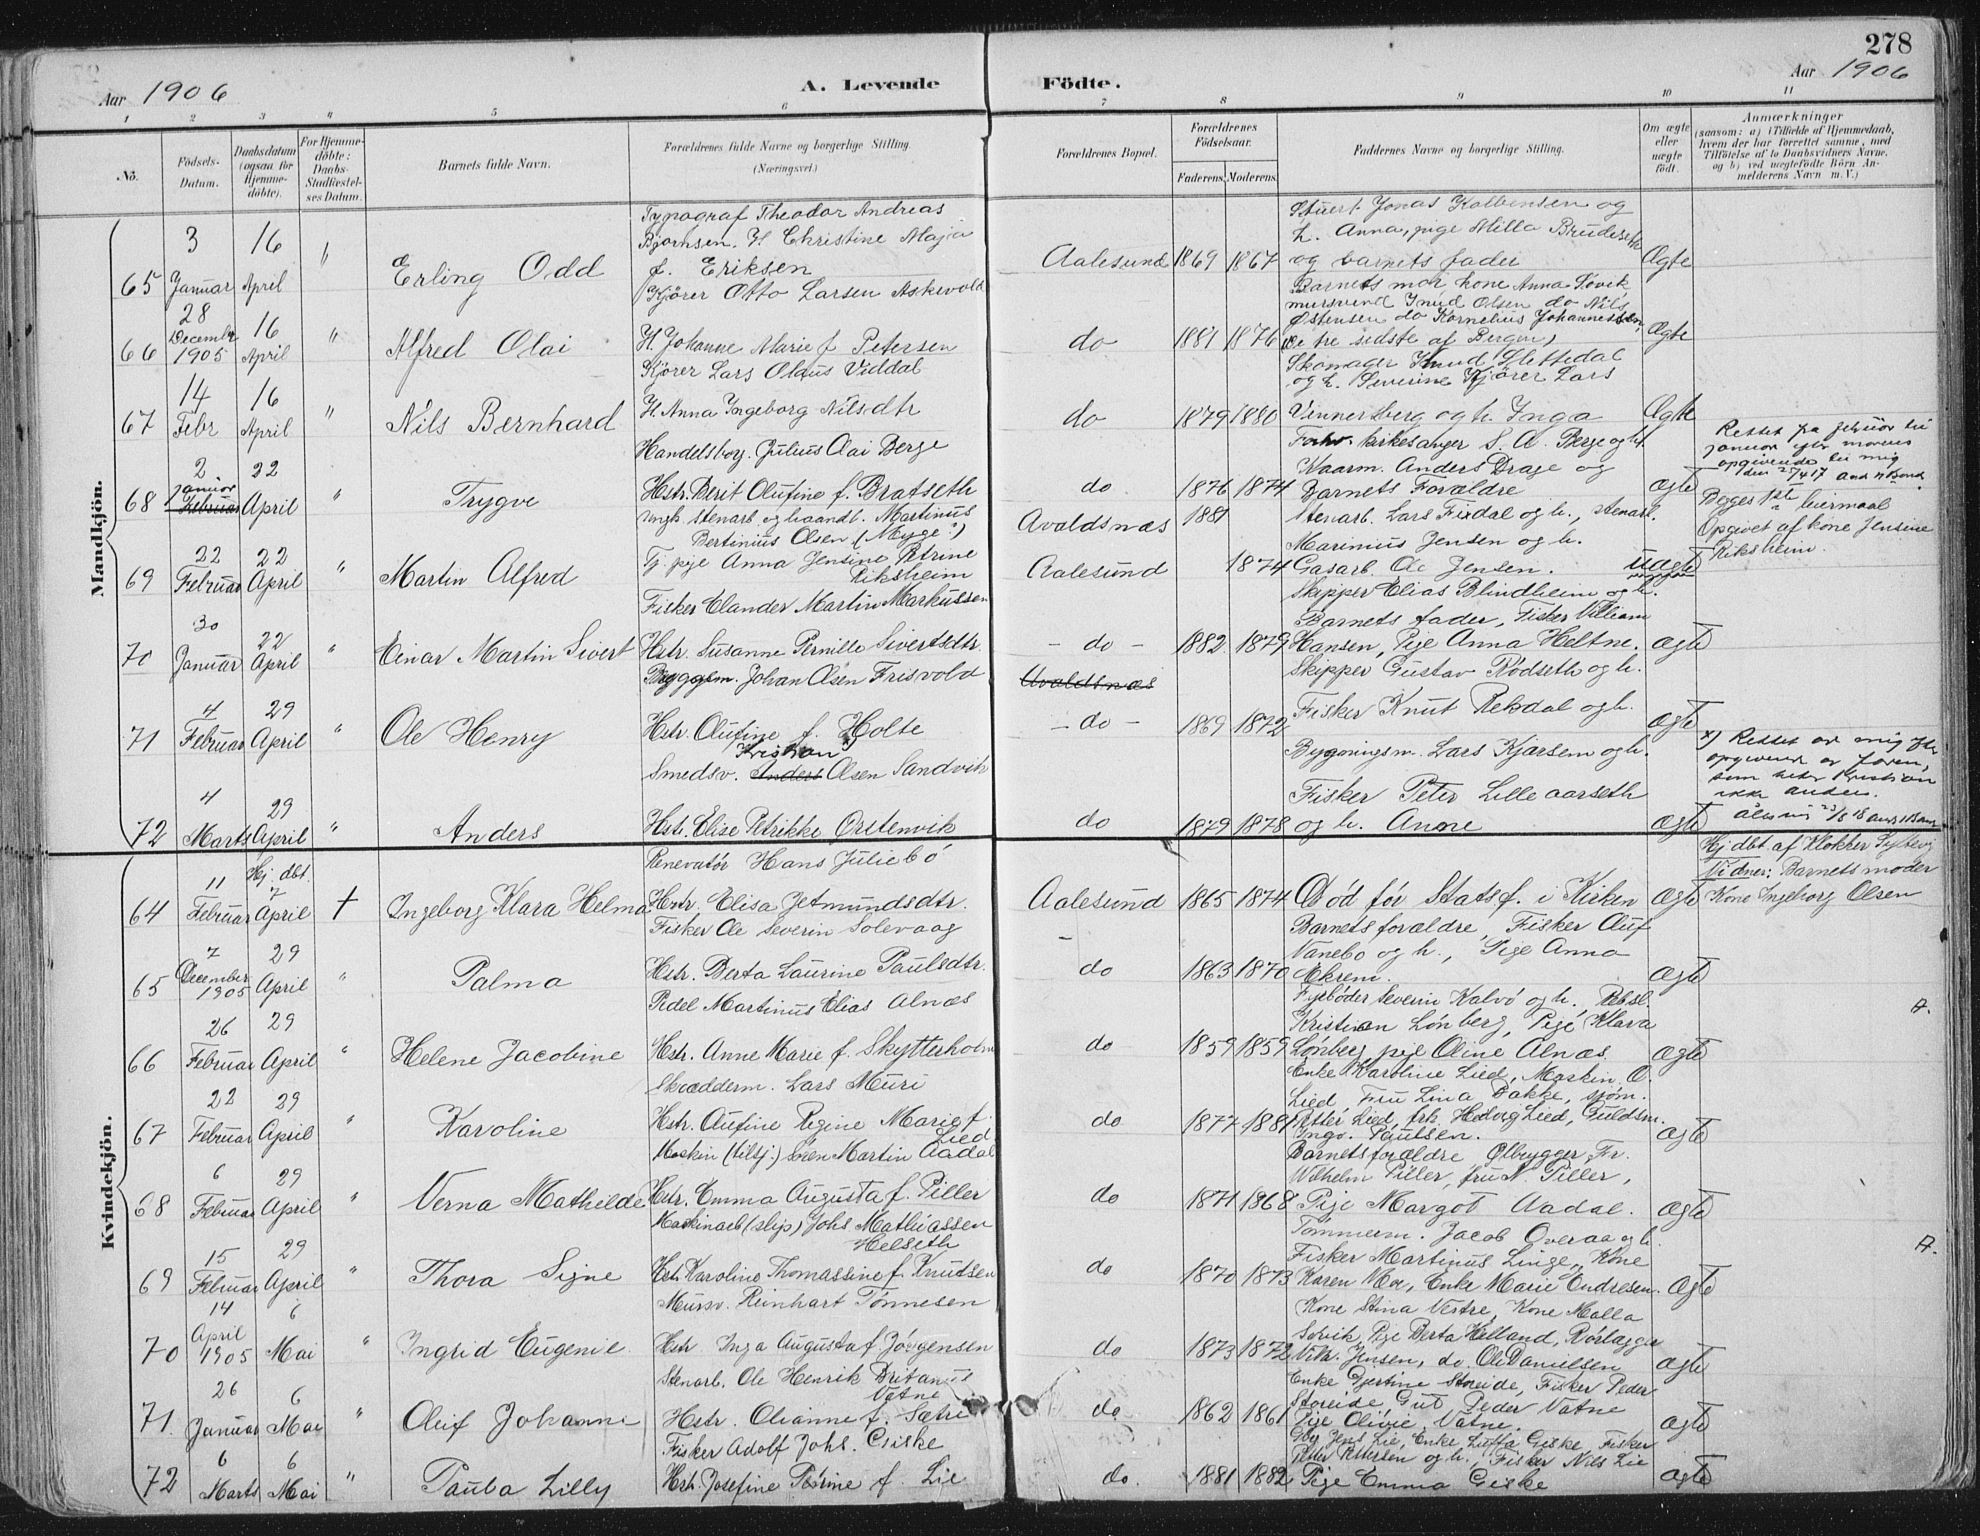 278
Aar 1906
A. Levende Födte.
Aar 1906
1 2 3 4 5 6 7 8 9 10 11
No.
Födsels-Datum.
Daabsdatum (ogsaa for Hjemmedöbte).
For Hjemmedöbte: Daabs-Stadfæstelses Datum.
Barnets fulde Navn.
Forældrenes fulde Navne og borgerlige Stilling. (Næringsvei.)
Forældrenes Bopæl.
Forældrenes Födselsaar.
Faderens. Moderens.
Faddernes Navne og borgerlige Stilling.
Om ægte eller uægte födt.
Anmærkninger
(saasom: a) i Tilfælde af Hjemmedaab,
hvem der har forrettet samme, med
Tilföielse af to Daabsvidners Navne,
og b) ved uægtefödte Börn An-
melderens Navn m. V.)
Mandkjön.
65
3 Januar
16 April
"
Erling Odd
Typograf Theodor Andreas
Bjørnsen. H. Christine Maja
f. Eriksen
Aalesund
1869 1867
Stuert Jonas Kolbensen og
h. Anna, pige Milla
og barnets fader
Ægte
66
28 December 1905
16 April
"
Alfred Olai
Kjører Otto Larsen Askevold
H. Johanne Marie f. Petersen
do
1881 1876
Barnets mor, kone Anna Løvik
mursvend Knud Olsen do Nils
Østensen do Kornelius Johannessen
(de tre sidste af Bergen)
Ægte
67
14 Febr
16 April
"
Nils Bernhard
Kjører Lars Olaus Viddal
H. Anna Ingeborg Nilsdtr
do
1879 1880
Skomager Knud Slettedal
og h. Severine Kjører Lars
Vennersberg og h. Inga
Ægte
68
2 Januar Februar
22 April
"
Trygve
Handelsborg. Julius Olai Berge
Hstr. Berit Olufine f. Bratseth
do.
1876 1874
Forhv. kirkesanger S. A. Berge og h.
Kaarm. Anders Drage og
Barnets Forældre
ægte
Rettet fra februar til
januar efter morens
opgivende til mig
den 27/4 17
69
22 Februar
22 April
"
Martin Alfred
Ungk. stenarb. og haandt. Martinus
Bertinius Olsen (Mygge?)
Tj. pige Anna Jensine Petrine
Riksheim
Avaldsnæs
Aalesund
1881
1874
Stenarb. Lars Fixdal og h., stenarb.
Marinius Jensen og h.
Gasarb. Ole Jensen.
uægte
Begges 1ste leiermaal
Opgivet af kone Jensine
Riksheim.
70
30 Januar
22 April
"
Einar Martin Sivert
Fisker Elander Martin Markussen
Hstr. Susanne Pernille Sivertsdtr.
- do -
1882 1879
Skipper Elias Blindheim og h.
Barnets fader, Fisker Villiam
Hansen, Pige Anna Heltne.
ægte
71
4 Februar
29 April
"
Ole Henry
Byggm. Johan Olsen Frisvold
Hstr. Olufine f. Holte
Avaldsnæs
- do -
1869 1872
Skipper Gustav Rødseth og h.
Fisker Knut Rekdal og h.
ægte
72
4 Marts
29 April
"
Anders
Kristian x)
Smedsv. Anders Olsen Sandvik
Hstr. Elise Petrikke Orstenvik
do
1879 1878
Bygningsm. Lars Kjørsem og h.
Fisker Peter Lilleaarseth
og h. Anne
ægte
x) Rettet av mig efter
opgivende av faren,
som heter Kristian
ikke Anders.
Ålesund 23/5 18
Kvindekjön.
64
11 Februar
Hj. dbt. 7 April
+
Ingeborg Klara Helma
Renovatør Hans Juliebø
Hstr. Elisa Jetmundsdtr.
Aalesund
1865 1874
Død før Statsf. i Kirken
ægte
Hj dbt. af Klokker Syltevig
Vidner: Barnets moder
Kone Ingeborg Olsen
65
7 December 1905
29 April
"
Palma
Fisker Ole Severin Solevaag
Hstr. Berta Laurine Paulsdtr.
do
1863 1870
Barnets forældre, Fisker Oluf
Vanebo og h., Pige Anna
Ekrem.
ægte
66
26 Februar
29 April
"
Helene Jacobine
Pedel Martinus Elias Alnæs
Hstr. Anne Marie f. Skytterholm
do
1859 1859
Fyrbøder Severin Kalvø og h. Rebsl.
Kristian Lønberg, Pige Klara
Lønberg, pige Oline Alnæs.
ægte
A.
67
22 Februar
29 April
"
Karoline
Skrædderm. Lars Muri
Hstr. Olufine Regine Marie f.
Lied
do
1877 1881
Enke Karoline Lied, Maskin. O.
Lied, Fru Lina Bakke, sjøm.
Petter Lied, frk. Hedvig Lied, Guldsm.
Ingv. Paulsen.
ægte
68
6 Februar
29 April
"
Verna Mathilde
Maskin (tilsj.) Søren Martin Aadal
Hstr. Emma Augusta f. Piller
do
1871 1868
Barnets forældre Ølbrygger Fr.
Wilhelm Piller, fru N. Piller,
Pige Margot Aadal.
ægte
69
15 Februar
29 April
"
Thora Signe
Maskinarb (slip) Johs Mathiassen
Helseth
Hstr. Karoline Thomassine f. Knutsen
do
1870 1873
Tømmerm. Jacob Overaa og h.
Fisker Martinus Linge, Kone
Karen Moe, Enke Marie Endresen.
ægte
A.
70
14 April 1905
6 Mai
"
Ingrid Eugenie
Mursv. Reinhart Tønnesen
Hstr Inga Augusta f. Jørgensen
do
1873 1872
Kone Stina Vestre, Kone Malla
Søvik, Pige Berta Helland, Rørlægger
Vilh. Jensen, do. Ole Danielsen
ægte
71.
26 Januar
6 Mai
"
Oleif Johanne
Stenarb. Ole Henrik Britanus
Vatne
Hstr. Olianne f. Sætre
do
1862 1861
Enke Gjertine Storeide, Fisker Peder
Storeide, Gut Peder Vatne
Pige Olivie Vatne.
ægte
72
6 Marts
6 Mai
"
Pauba Lilly
Fisker Adolf Johs. Giske
Hstr. Josefine Petrine f. Lie
do.
1881 1882
Gbg Jens Lie, Enke Giske, Fisker
Petter Pettersen og h., Fisker Nils Lie
Pige Emma Giske
ægte